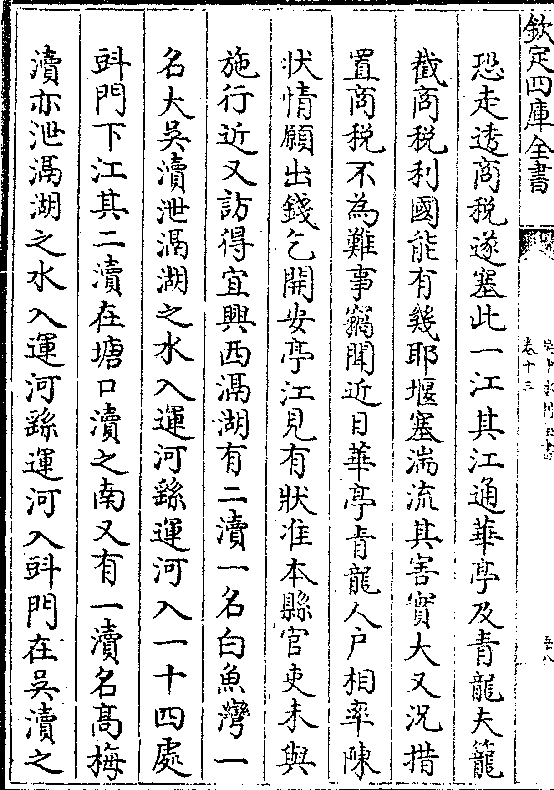 欽定四庫全書
卷十三
恐走透商稅遂塞此一江其江通華亭及青龍夫籠
截商稅利國能有幾耶堰塞湍流其害實大又況措
置商稅不為難事竊聞近日華亭青龍人户相率陳
狀情願出錢乞開安亭江見有狀准本縣官吏未與
施行近又訪得宜興西滆湖有二瀆一名白魚灣一
名大吳瀆泄滆湖之水入運河繇運河入一十四處
㪷門下江其二瀆在塘口瀆之南又有一瀆名髙梅
瀆亦泄滆湖之水入運河繇運河入㪷門在吳瀆之